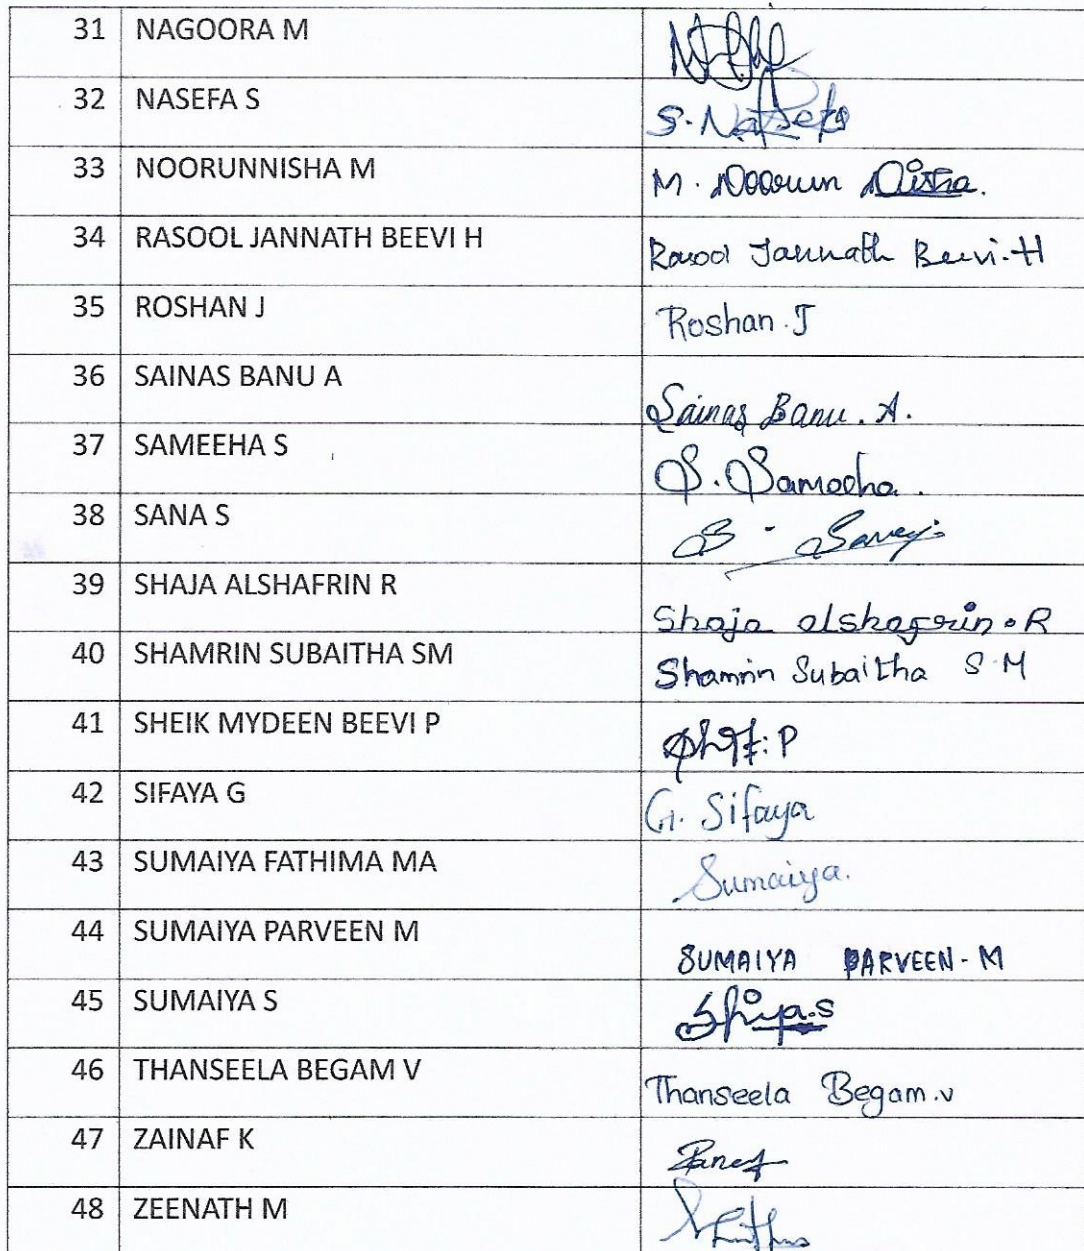 31 NAGOORA M
32 NASEFA S S. Nafsefa
33 NOORUNNISHA M M. Noorun Nisha.
34 RASOOL JANNATH BEEVI H Rasool Jannath Beevi-H
35 ROSHAN J Roshan J
36 SAINAS BANU A Sainas Banu. A.
37 SAMEEHA S S. Sameeha.
38 SANA S
39 SHAJA ALSHAFRIN R Shaja alshafrin.R
40 SHAMRIN SUBAITHA SM Shamrin Subaitha S.M
41 SHEIK MYDEEN BEEVI P
42 SIFAYA G G. Sifaya
43 SUMAIYA FATHIMA MA Sumaiya.
44 SUMAIYA PARVEEN M SUMAIYA PARVEEN-M
45 SUMAIYA S
46 THANSEELA BEGAM V Thanseela Begam.v
47 ZAINAF K
48 ZEENATH M